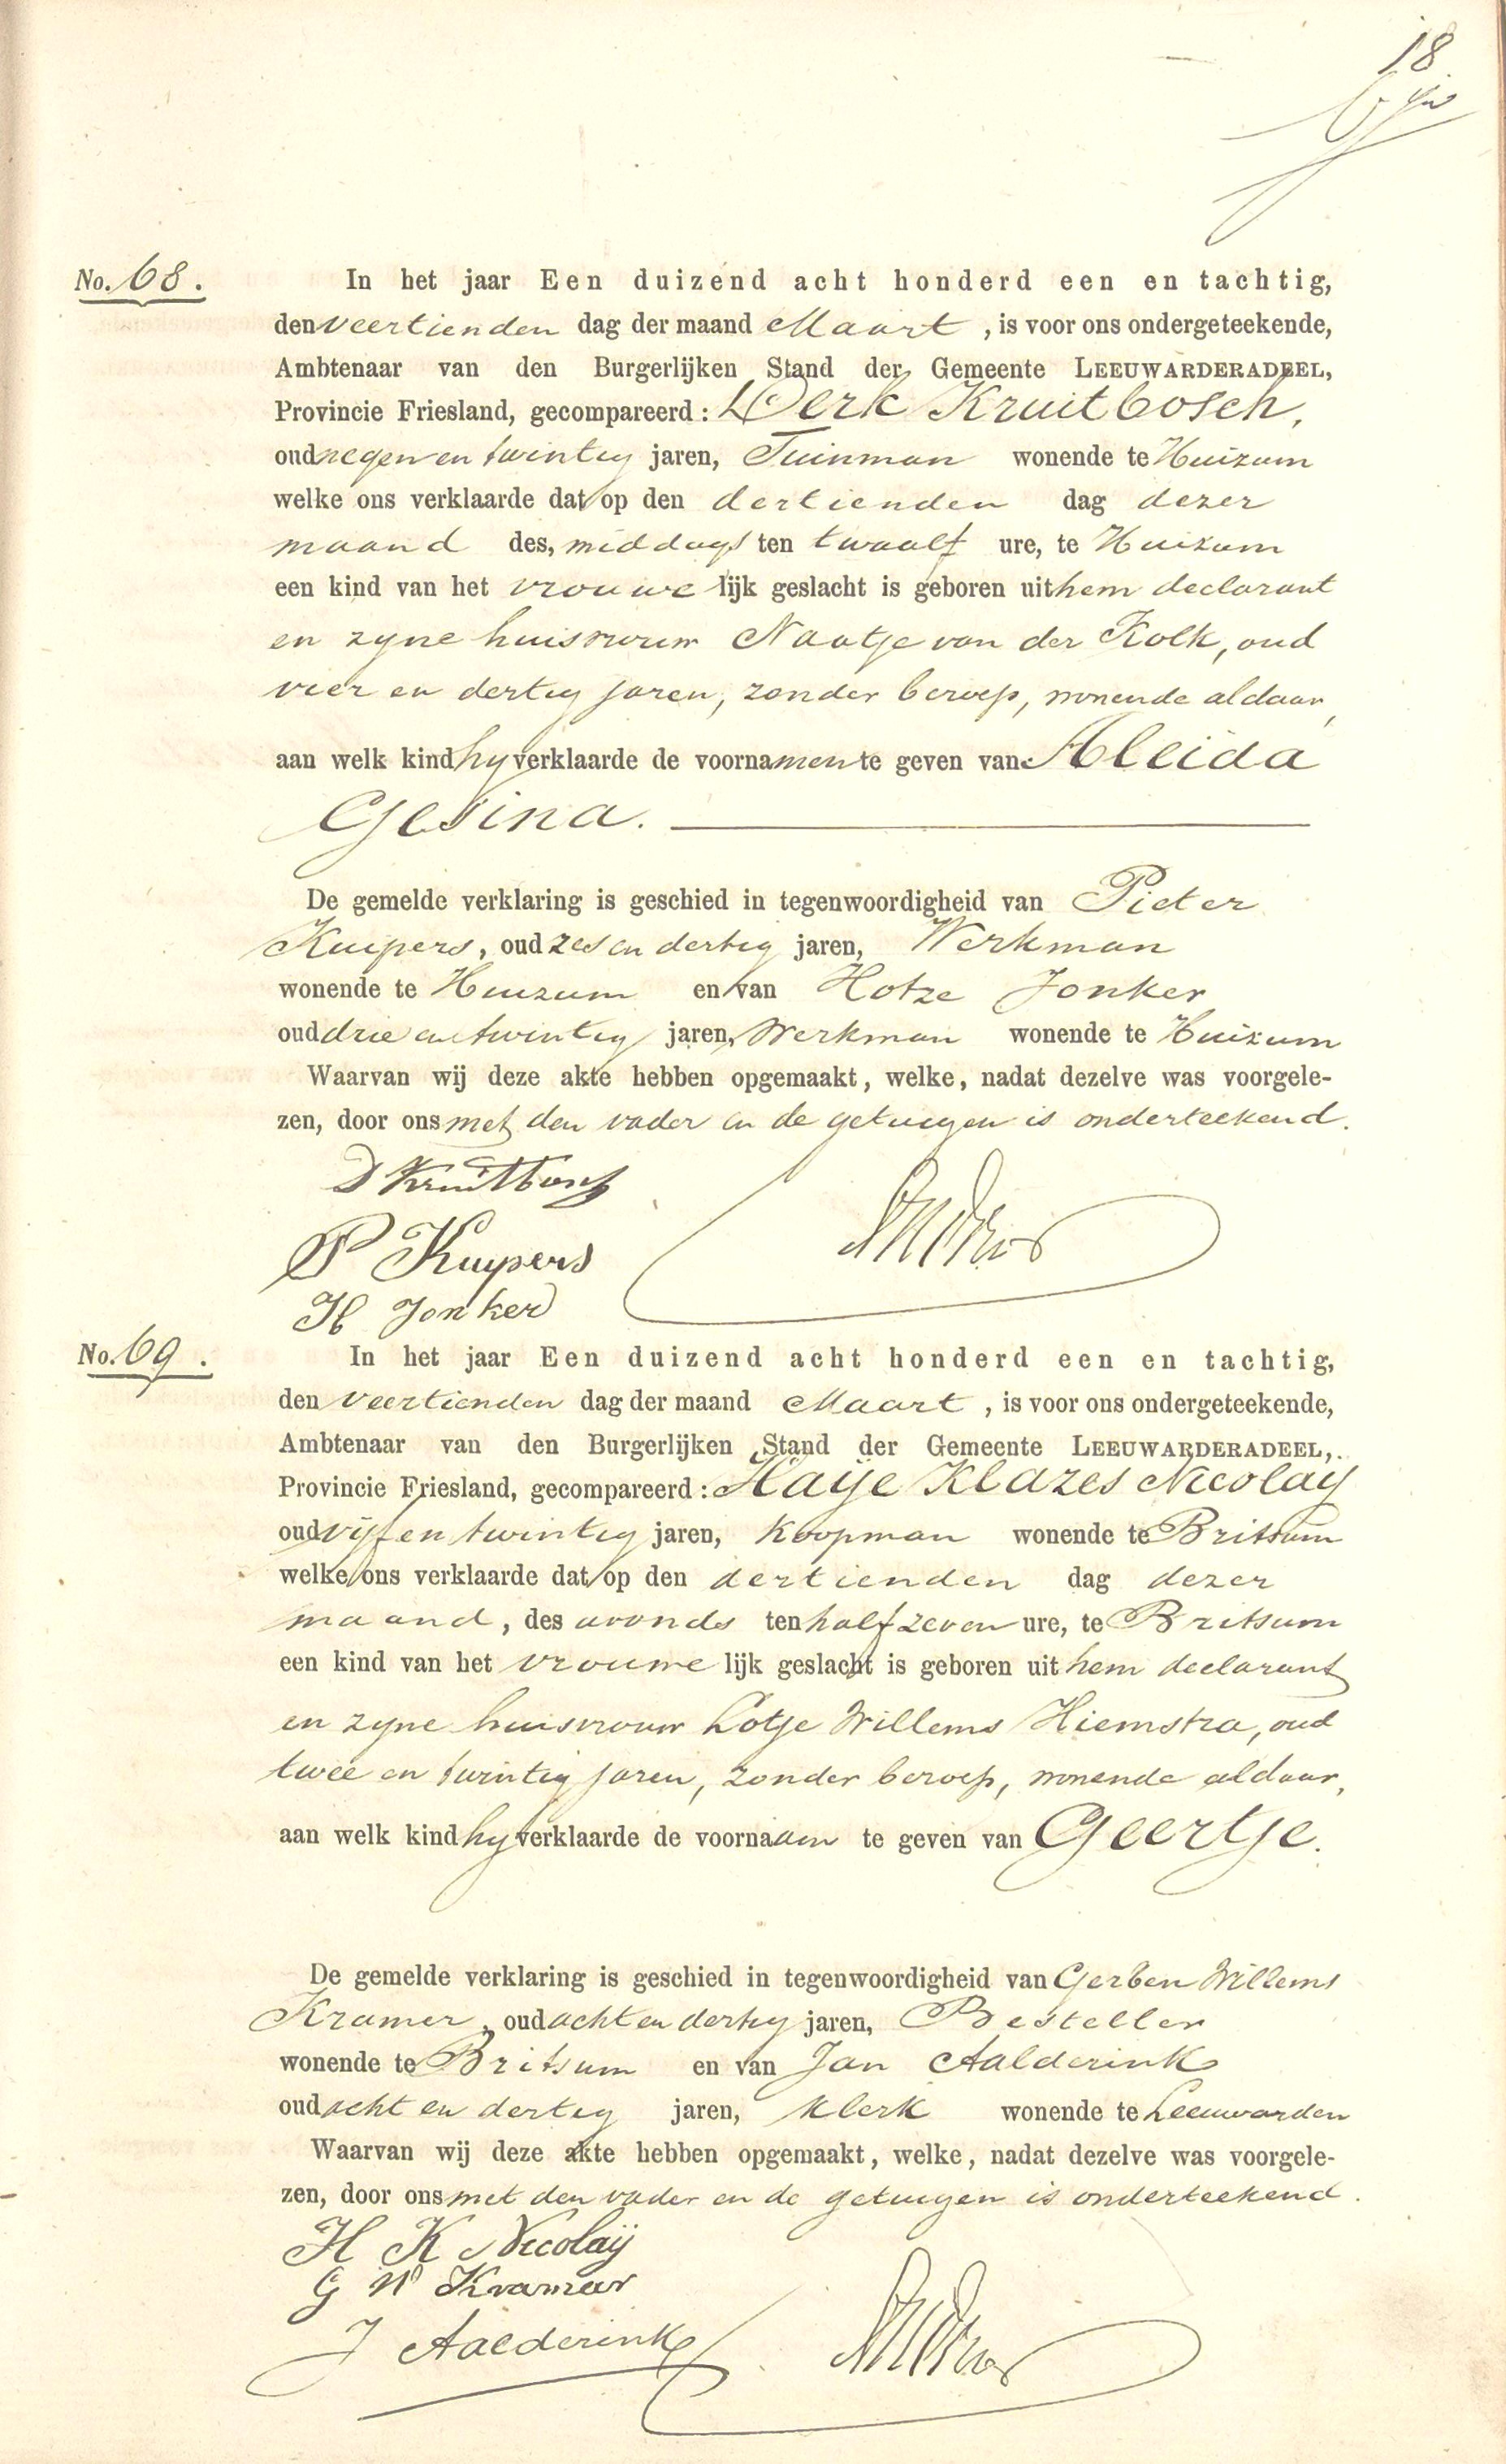 18
No. 68.
In het jaar Een duizend acht honderd een en tachtig,
den veertienden dag der maand Maart, is voor ons ondergeteekende,
Ambtenaar van den Burgerlijken Stand der Gemeente LEEUWARDERADEEL,
Provincie Friesland, gecompareerd: Derk Kruitbosch,
oud negen en twintig jaren, Tuinman wonende te Huizum
welke ons verklaarde dat op den dertienden dag dezer
maand des, middags ten twaalf ure, te Huizum
een kind van het vrouwelijk geslacht is geboren uit hem declarant
en zyne huisvrouw Naatje van der Kolk, oud
vier en dertig jaren, zonder beroep, wonende aldaar,
aan welk kind hy verklaarde de voornamen te geven van Aleida
Gesina.
De gemelde verklaring is geschied in tegenwoordigheid van Pieter
Kuipers, oud zes en dertig jaren, Werkman
wonende te Huizum en van Hotze Jonker
oud drie en twintig jaren, Werkman wonende te Huizum
Waarvan wij deze akte hebben opgemaakt, welke, nadat dezelve was voorgele-
zen, door ons met den vader en de getuigen is onderteekend.
D Kruitbosch
P Kuypers
H Jonker
No. 69.
In het jaar Een duizend acht honderd een en tachtig,
den veertienden dag der maand Maart, is voor ons ondergeteekende,
Ambtenaar van den Burgerlijken Stand der Gemeente LEEUWARDERADEEL,
Provincie Friesland, gecompareerd: Haije Klazes Nicolay
oud vijf en twintig jaren, Koopman wonende te Britsum
welke ons verklaarde dat op den dertienden dag dezer
maand, des avonds ten half zeven ure, te Britsum
een kind van het vrouwelijk geslacht is geboren uit hem declarant
en zyne huisvrouw Lotje Willems Hiemstra, oud
twee en twintig jaren, zonder beroep, wonende aldaar,
aan welk kind hy verklaarde de voornaam te geven van Geertje.
De gemelde verklaring is geschied in tegenwoordigheid van Gerben Willems
Kramer, oud acht en dertig jaren, Besteller
wonende te Britsum en van Jan Aalderink
oud acht en dertig jaren, Klerk wonende te Leeuwarden
Waarvan wij deze akte hebben opgemaakt, welke, nadat dezelve was voorgele-
zen, door ons met den vader en de getuigen is onderteekend.
H K Nicolaij
G W Kramer
J Aalderink